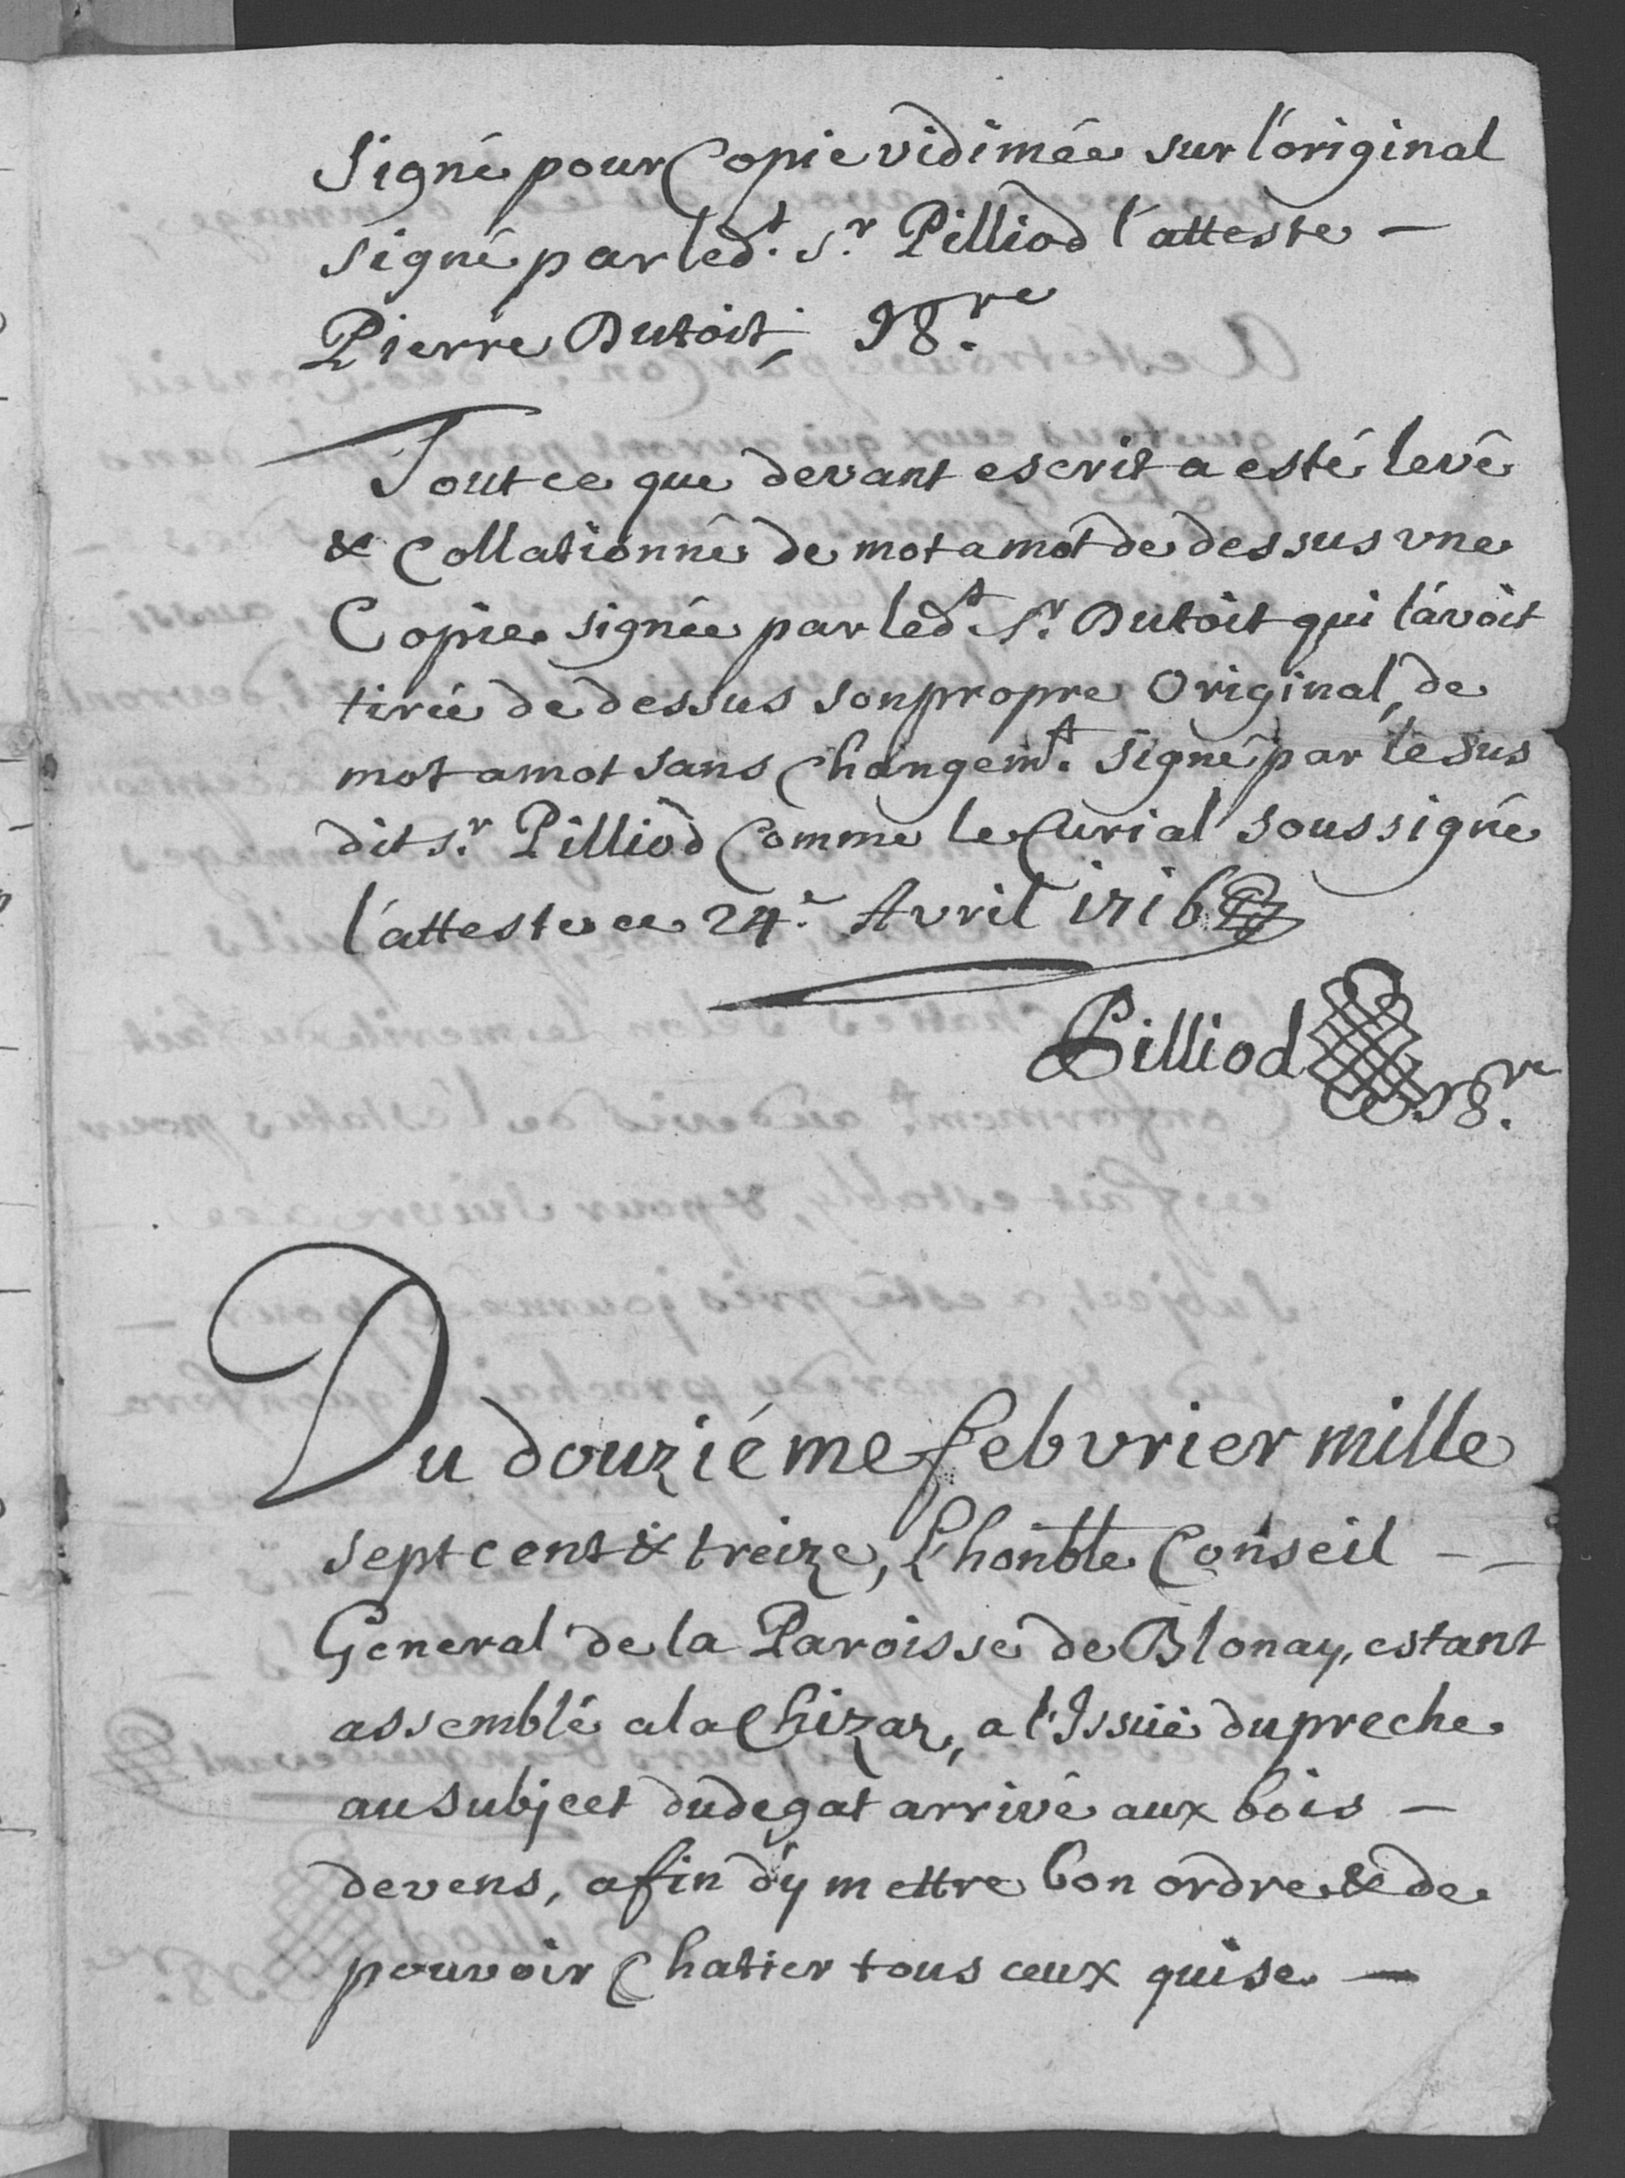 Signé pour Copie vidimée sur l'original
signé par led.t S.r Pilliod l'atteste –
Pierre Dutoit,
Tout ce que devant escrit a esté levé
& Collationné de mot a mot de dessus une
Copie signée par led.t S.r Dutoit qui l'avoit
tirée de dessus son propre Original, de
mot a mot sans Changem.t signé par le sus
dit s.r Pilliod Comme le Curial soussigné
l'atteste ce 24.e Avril 1716
Pilliod
Du douziéme febvrier mille
sept cent & treize, l'honble Conseil – –
General de la Paroisse de Blonay, estant
assemblé a la Chizaz, a l'Issüe du preche
au subject du degat arrivé aux bois –
devens, afin d'y mettre bon ordre & de
pouvoir Chatier tous ceux qui se –